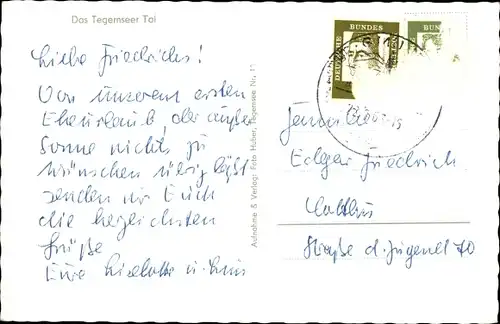 Das Tegernseer Tal
Liebe Friedrichs!
Von unserem ersten
Eheurlaub, der außer
Sonne nichts zu
wünschen übrig läßt
senden wir Euch
die herzlichsten
Grüße
Eure Liselotte u.
Aufnahme & Verlag: Foto Huber, Tegernsee Nr. 11
DEUTSCHE BUNDES
BUNDES
Edgar Friedrich
Cottbus
Straße d. Jugend 70